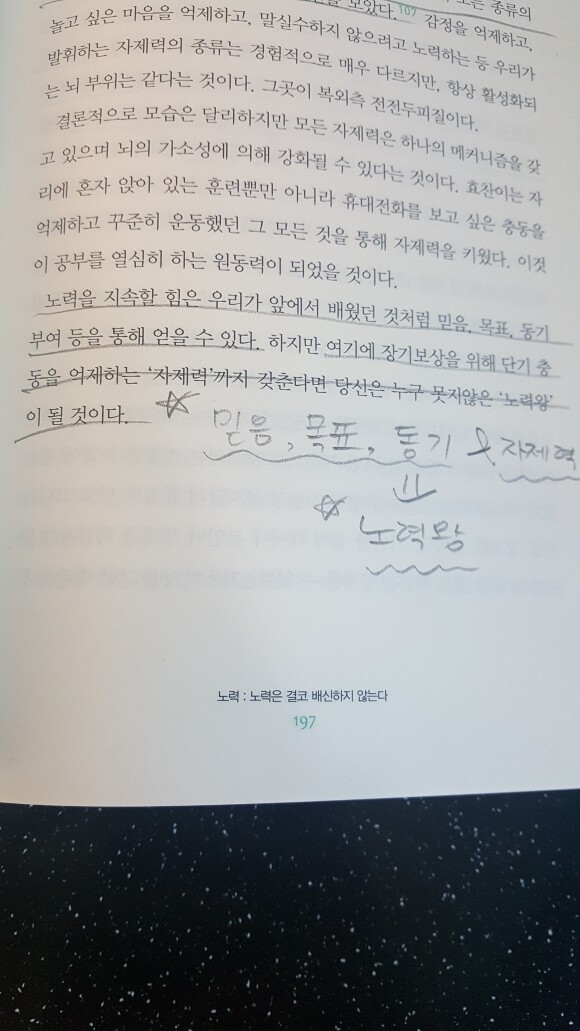 모았다.107 또는 종류의
놀고 싶은 마음을 억제하고, 말실수하지 않으려고 노력하는 등 우리가 감정을 억제하고,
발휘하는 자제력의 종류는 경험적으로 매우 다르지만, 항상 활성화되
는 뇌 부위는 같다는 것이다. 그곳이 복외측 전전두피질이다.
결론적으로 모습은 달리하지만 모든 자제력은 하나의 메커니즘을 갖
고 있으며 뇌의 가소성에 의해 강화될 수 있다는 것이다. 효찬이는 자
리에 혼자 앉아 있는 훈련뿐만 아니라 휴대전화를 보고 싶은 충동을
억제하고 꾸준히 운동했던 그 모든 것을 통해 자제력을 키웠다. 이것
이 공부를 열심히 하는 원동력이 되었을 것이다.
노력을 지속할 힘은 우리가 앞에서 배웠던 것처럼 믿음, 목표, 동기
부여 등을 통해 얻을 수 있다. 하지만 여기에 장기보상을 위해 단기 충
동을 억제하는 '자제력'까지 갖춘다면 당신은 누구 못지않은 '노력왕'
이 될 것이다.
믿음, 목표, 동기 & 자제력
=
노력왕
노력 : 노력은 결코 배신하지 않는다
197